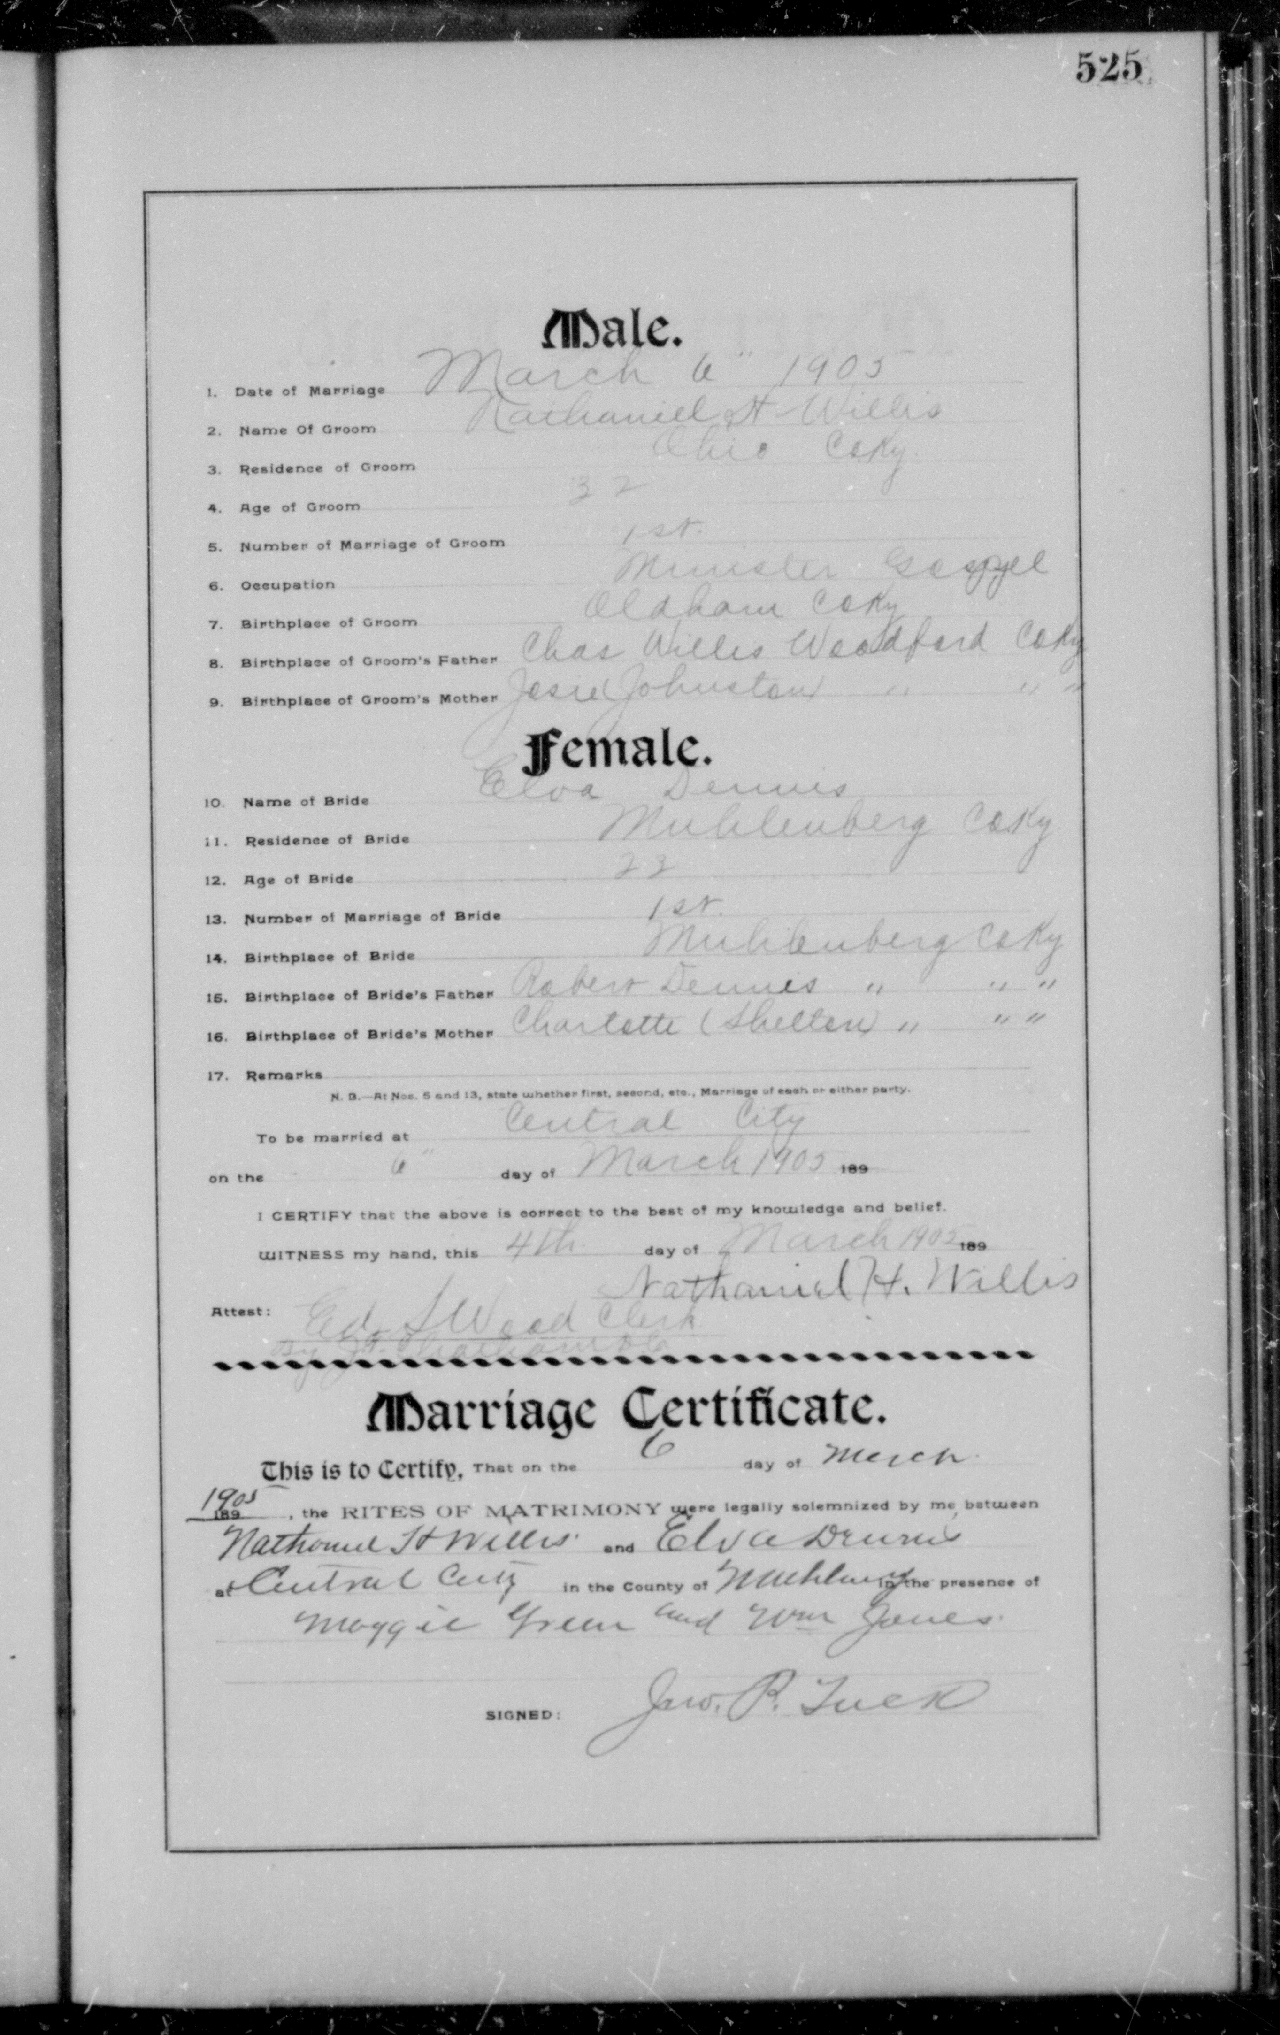 525
Male.
1. Date of Marriage March 6" 1905
2. Name Of Groom Nathaniel H Willis
3. Residence of Groom Ohio Co Ky.
4. Age of Groom 32
5. Number of Marriage of Groom 1st.
6. Occupation Minister Gospel
7. Birthplace of Groom Oldham Co Ky
8. Birthplace of Groom's Father Chas Willis Woodford Co Ky
9. Birthplace of Groom's Mother Josie (Johnston) " " "
Female.
10. Name of Bride Elva Dennis
11. Residence of Bride Muhlenberg Co Ky
12. Age of Bride 23
13. Number of Marriage of Bride 1st.
14. Birthplace of Bride Muhlenberg Co Ky
15. Birthplace of Bride's Father Robert Dennis " " "
16. Birthplace of Bride's Mother Charlotte (Shelton) " " "
17. Remarks
N. B.—At Nos. 5 and 13, state whether first, second, etc., Marriage of each or either party.
To be married at Central City
on the 6" day of March 1905 189
I CERTIFY that the above is correct to the best of my knowledge and belief.
WITNESS my hand, this 4th day of March 1905 189
Nathaniel H. Willis
Attest: Ed. S Wood Clerk
By
Marriage Certificate.
This is to Certify, That on the 6 day of March
1905 189 , the RITES OF MATRIMONY were legally solemnized by me, between
Nathaniel H Willis and Elva Dennis
at Central City in the County of Muhlenberg in the presence of
Maggie Green and Wm Jones
SIGNED: Jno. P. Tuck